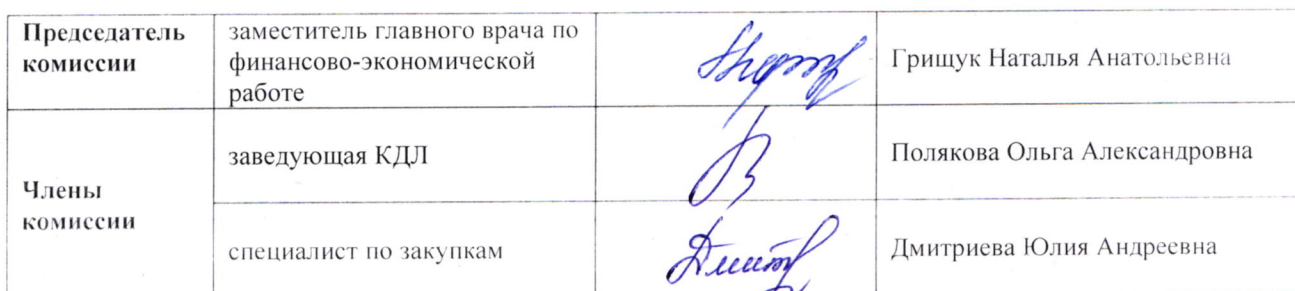 Председатель
комиссии
заместитель главного врача по
финансово-экономической
работе
Грищук Наталья Анатольевна
Члены
комиссии
заведующая КДЛ
Полякова Ольга Александровна
специалист по закупкам
Дмитриева Юлия Андреевна